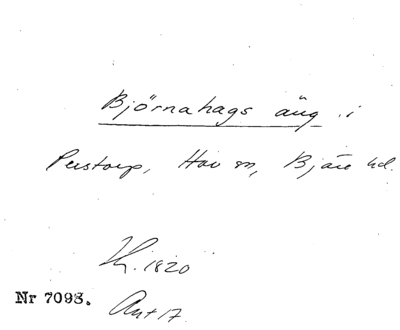 Björnahags äng i
Perstorp, Hov sn, Bjäre hd.
H. 1820
Nr 7093.
Ant 17